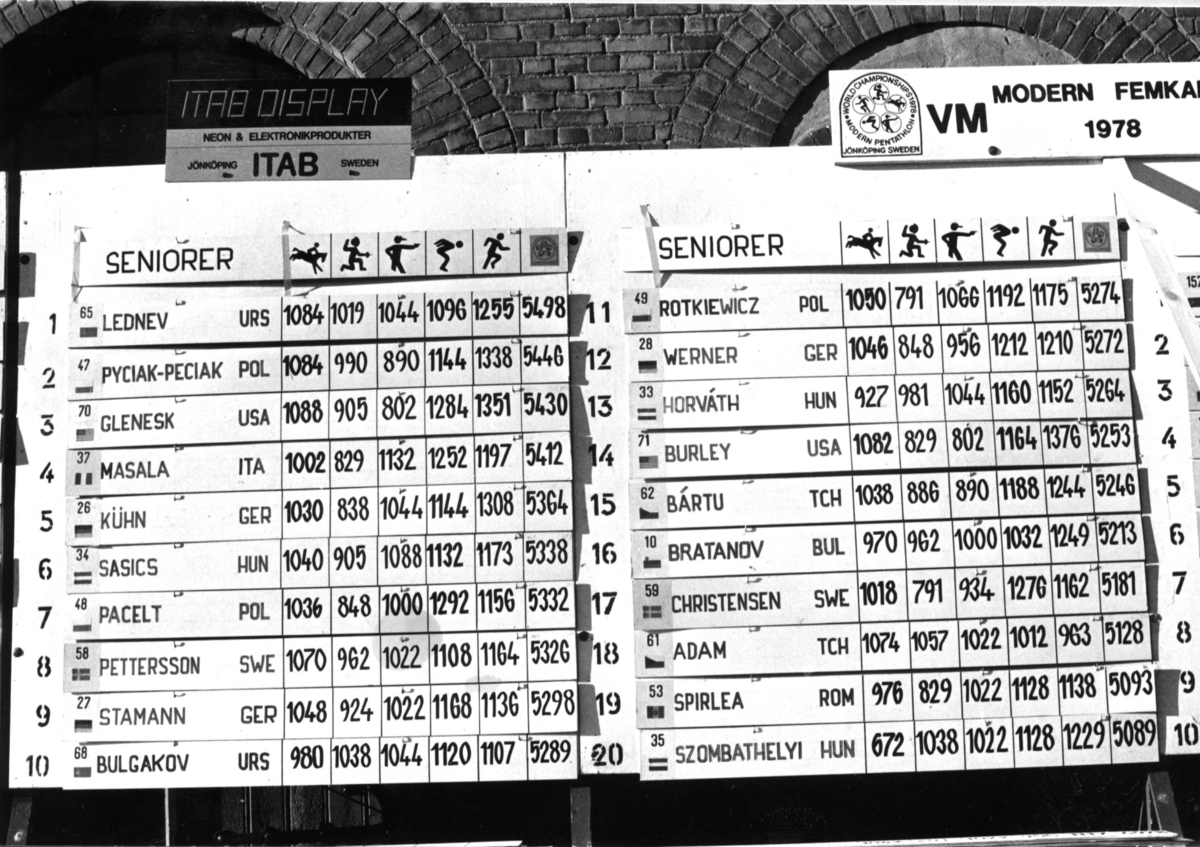 ITAB DISPLAY
NEON & ELEKTRONIKPRODUKTER
JÖNKÖPING ITAB SWEDEN
WORLD CHAMPIONSHIPS 1978
MODERN PENTATHLON
JÖNKÖPING SWEDEN
VM MODERN FEMKA
1978
SENIORER
1 65 LEDNEV URS 1084 1019 1044 1096 1255 5498
2 47 PYCIAK-PECIAK POL 1084 990 890 1144 1338 5446
3 70 GLENESK USA 1088 905 802 1284 1351 5430
4 37 MASALA ITA 1002 829 1132 1252 1197 5412
5 26 KÜHN GER 1030 838 1044 1144 1308 5364
6 34 SASICS HUN 1040 905 1088 1132 1173 5338
7 48 PACELT POL 1036 848 1000 1292 1156 5332
8 58 PETTERSSON SWE 1070 962 1022 1108 1164 5326
9 27 STAMANN GER 1048 924 1022 1168 1136 5298
10 68 BULGAKOV URS 980 1038 1044 1120 1107 5289
SENIORER
11 49 ROTKIEWICZ POL 1050 791 1066 1192 1175 5274
12 28 WERNER GER 1046 848 956 1212 1210 5272
13 33 HORVÁTH HUN 927 981 1044 1160 1152 5264
14 71 BURLEY USA 1082 829 802 1164 1376 5253
15 62 BÁRTU TCH 1038 886 890 1188 1244 5246
16 10 BRATANOV BUL 970 962 1000 1032 1249 5213
17 59 CHRISTENSEN SWE 1018 791 934 1276 1162 5181
18 61 ADAM TCH 1074 1057 1022 1012 963 5128
19 53 SPIRLEA ROM 976 829 1022 1128 1138 5093
20 35 SZOMBATHELYI HUN 672 1038 1022 1128 1229 5089
2
3
4
5
6
7
8
9
10